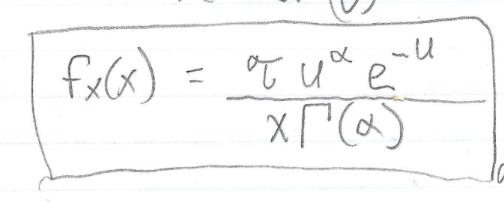 fₓ(x) = τ u^α e^-u / x Γ(α)